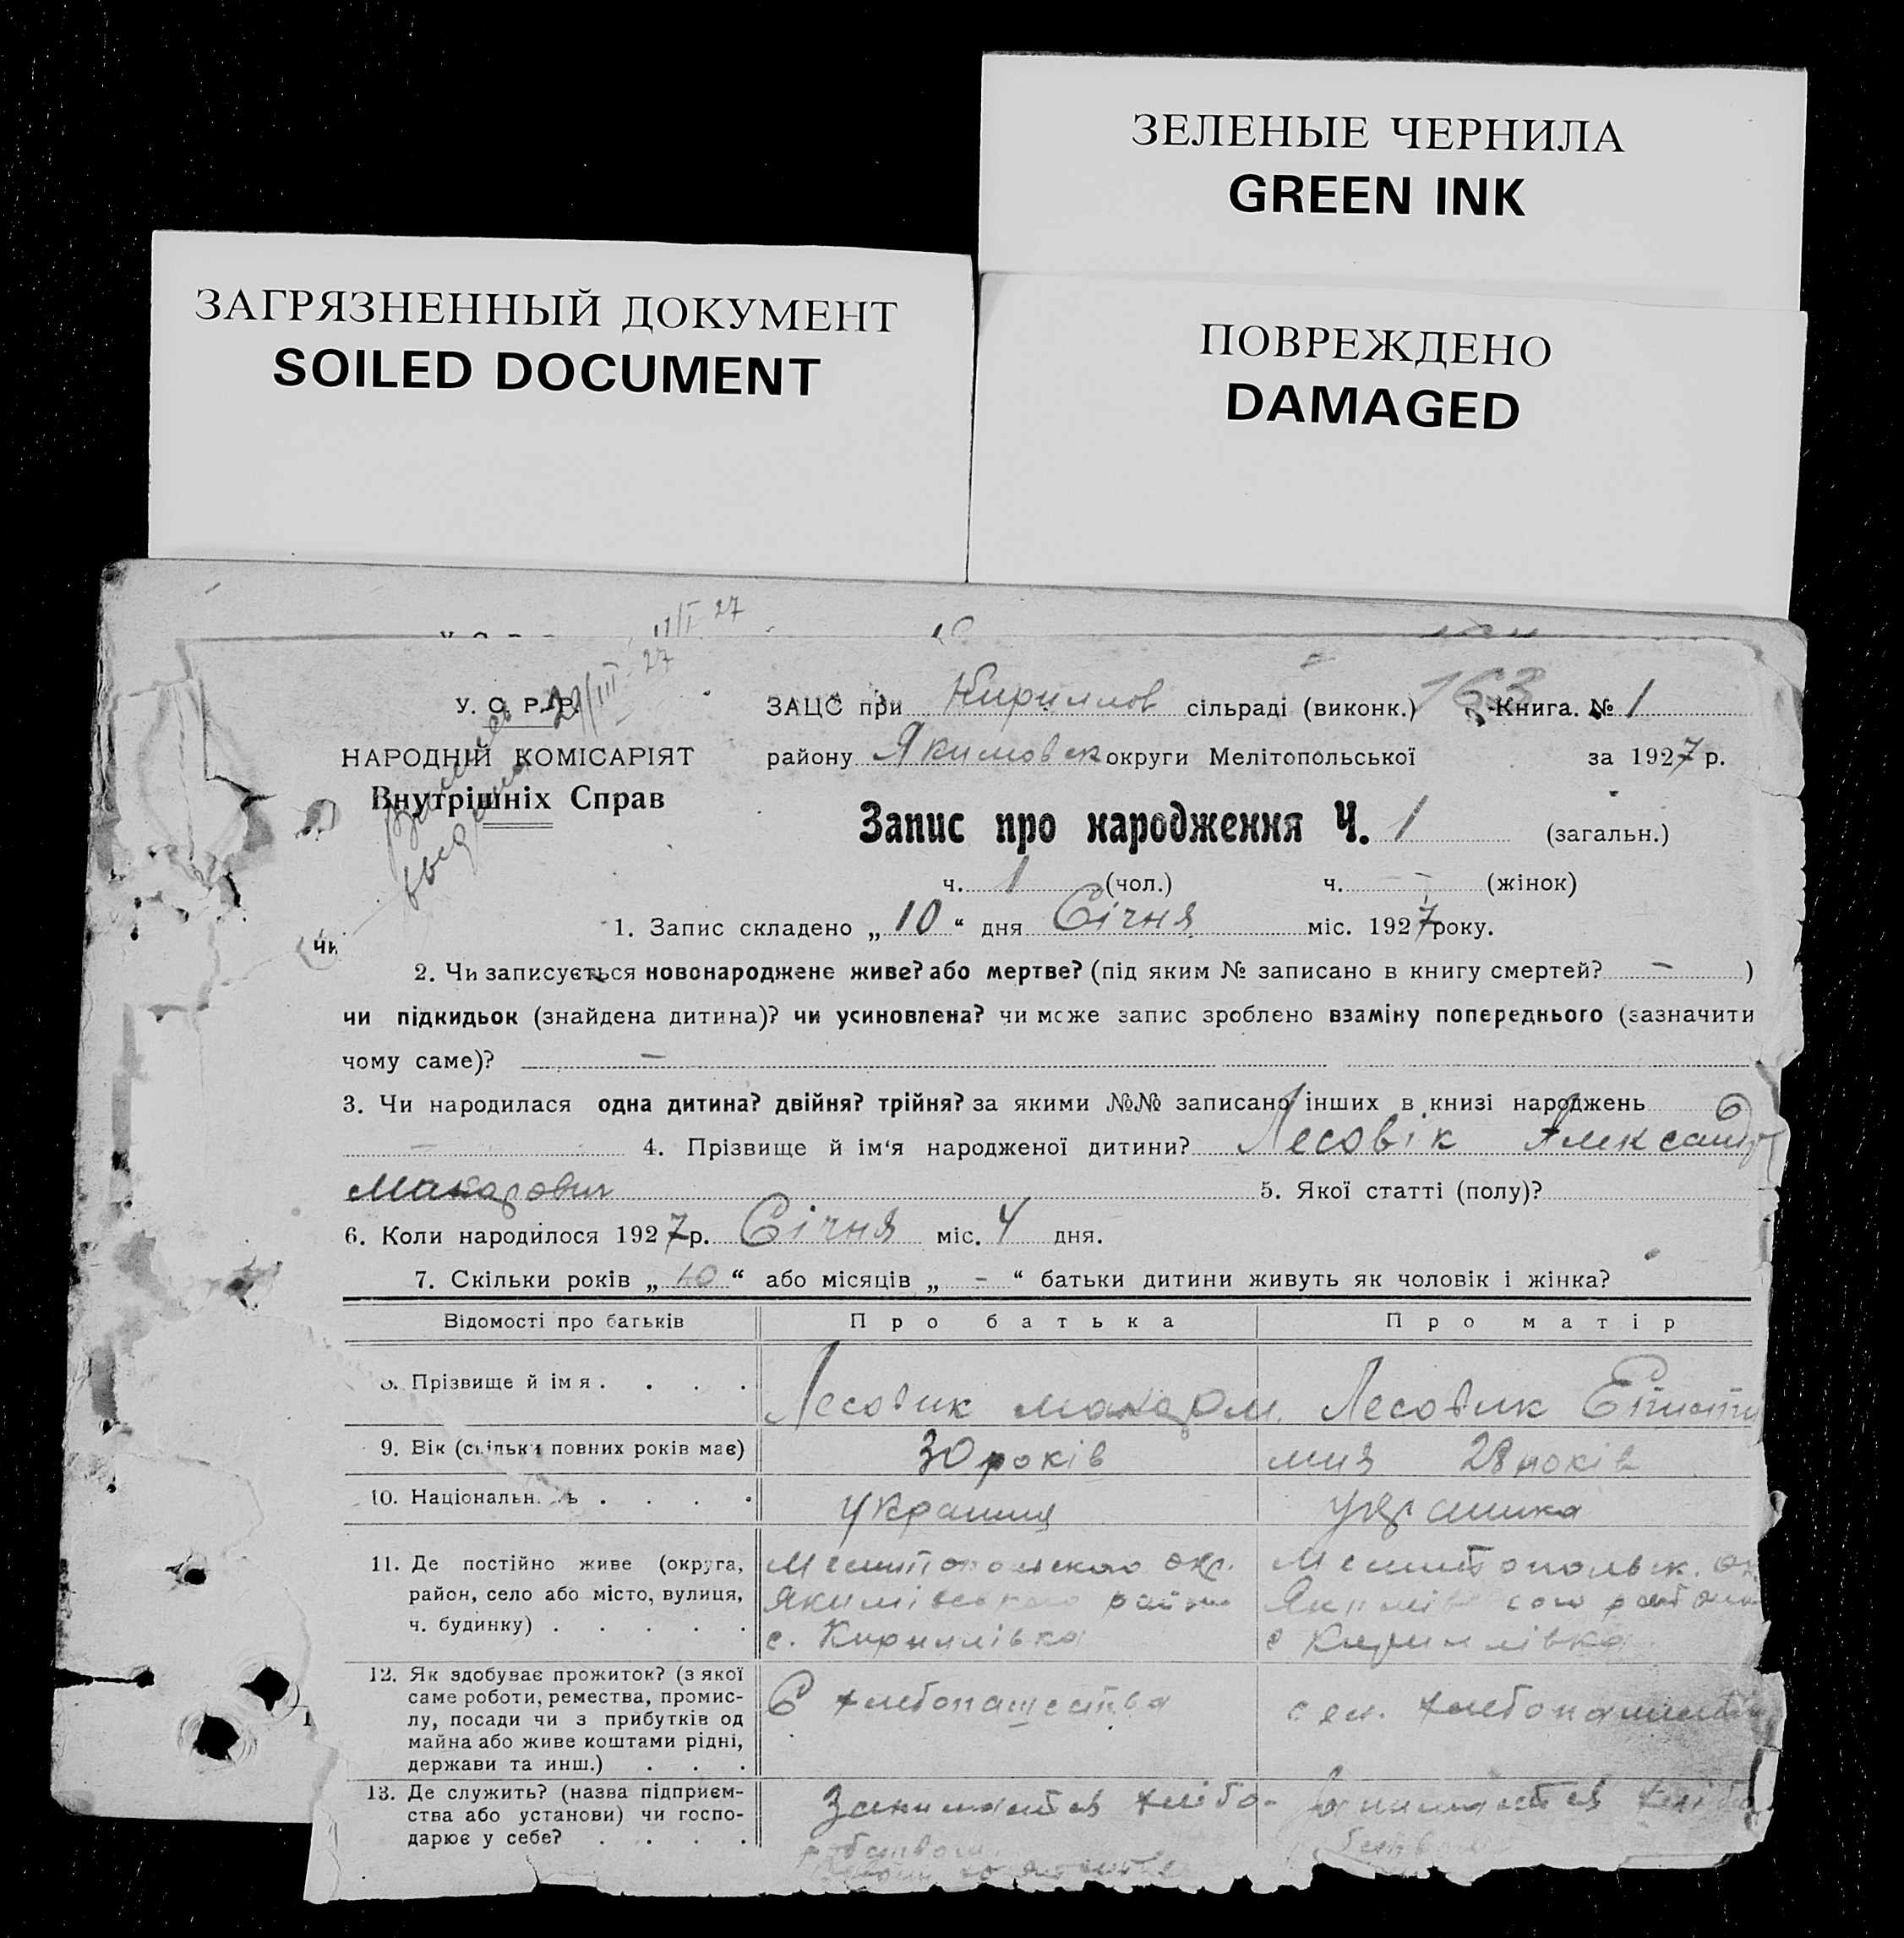 ЗЕЛЕНЫЕ ЧЕРНИЛА
GREEN INK
ЗАГРЯЗНЕННЫЙ ДОКУМЕНТ
SOILED DOCUMENT
ПОВРЕЖДЕНО
DAMAGED
11/I 27
29/III-27
У. С. Р. Р.
НАРОДНІЙ КОМІСАРІЯТ
Внутрішніх Справ
163
ЗАЦС при Кириллов сільраді (виконк.) Книга. № 1
району Якимовск округи Мелітопольської за 1927 р.
Запис про народження Ч. 1 (загальн.)
ч. 1 (чол.) ч. - (жінок)
1. Запис складено „10“ дня Січня міс. 1927 року.
чи
2. Чи записується новонароджене живе? або мертве? (під яким № записано в книгу смертей? – )
чи підкидьок (знайдена дитина)? чи усиновлена? чи може запис зроблено взаміну попереднього (зазначити
чому саме)? –
3. Чи народилася одна дитина? двійня? трійня? за якими №№ записано інших в книзі народжень
– 4. Прізвище й ім‘я народженої дитини? Лесовік Александр
Макарович 5. Якої статті (полу)?
6. Коли народилося 1927 р. Січня міс. 4 дня.
7. Скільки років „10“ або місяців „-“ батьки дитини живуть як чоловік і жінка?
Відомості про батьків Про батька Про матір
Прізвище й імя . . . . Лесовик Макар М. Лесовик
9. Вік (скільки повних років має) 30 років 28 років
10. Національн ь . . . . Українц Українка
11. Де постійно живе (округа, Мелитопольского окр. Мелитопольск. ок
район, село або місто, вулиця, Якимівського район
ч. будинку) . . . . . с. Кирилівка с Кирилівка
12. Як здобуває прожиток? (з якої
саме роботи, ремества, промис-
лу, посади чи з прибутків од
майна або живе коштами рідні,
держави та инш.) . . .
С хлебопашества
13. Де служить? (назва підприєм- Занимается хлібо-
ства або установи) чи госпо-
дарює у себе? . . . .